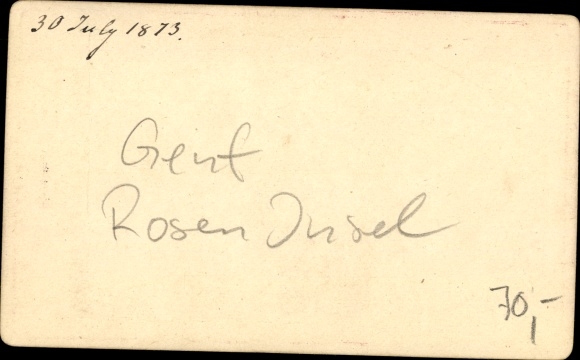 30 July 1873.
Genf
Rosen Insel
70,-